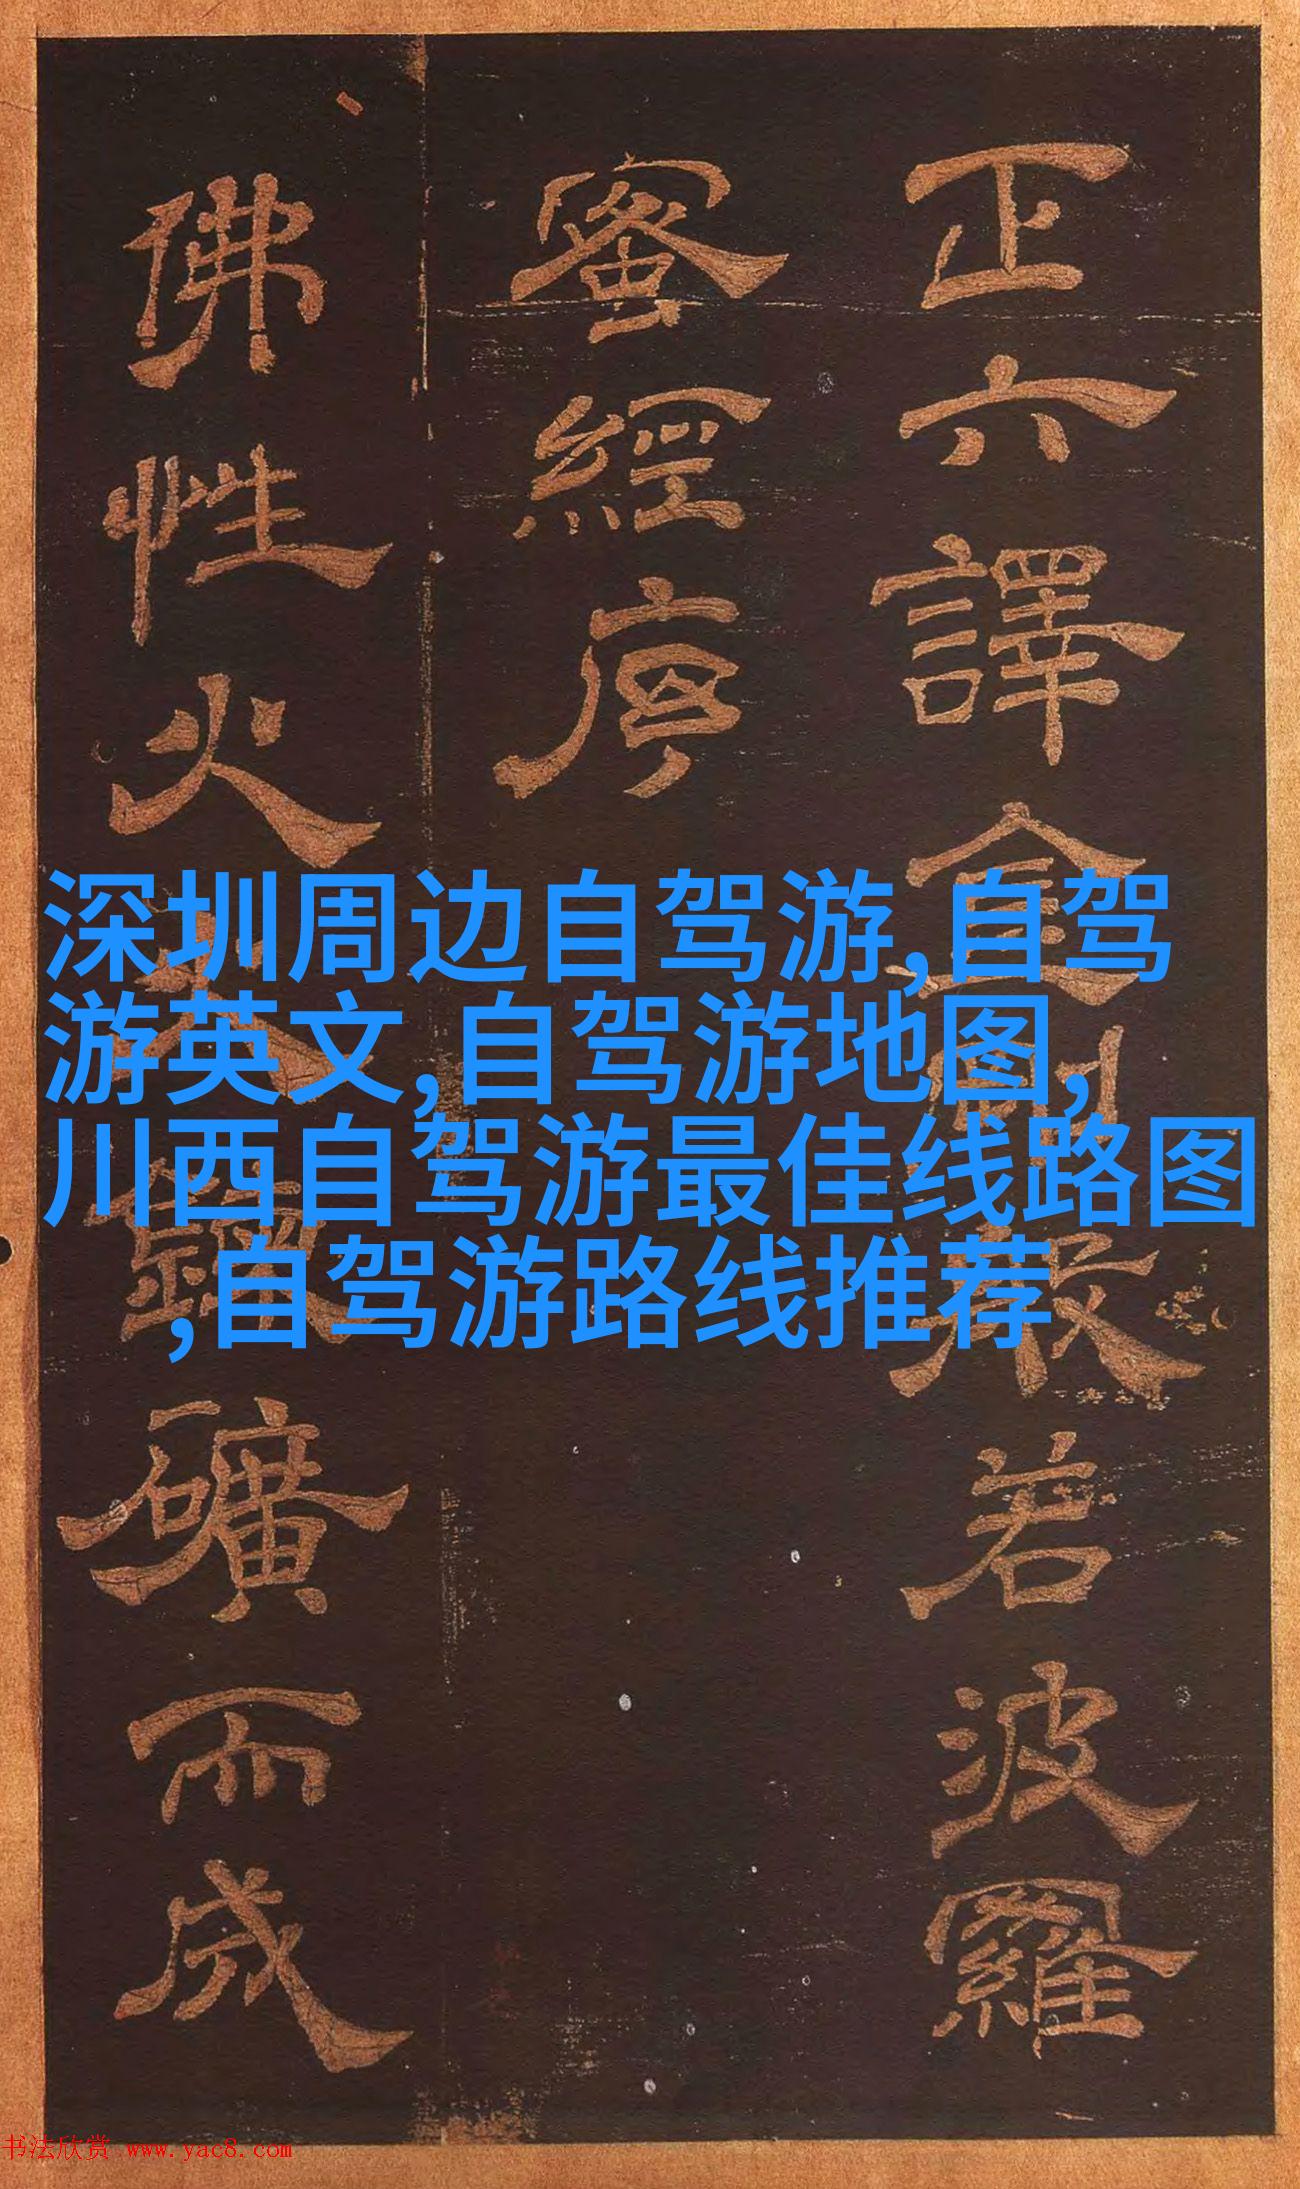 正六譯金剛般若波羅
蜜經序
佛性火木鑛礦而成
深圳周边自驾游,自驾
游英文,自驾游地图,
川西自驾游最佳线路图
,自驾游路线推荐
书法欣赏 www.yac8.com